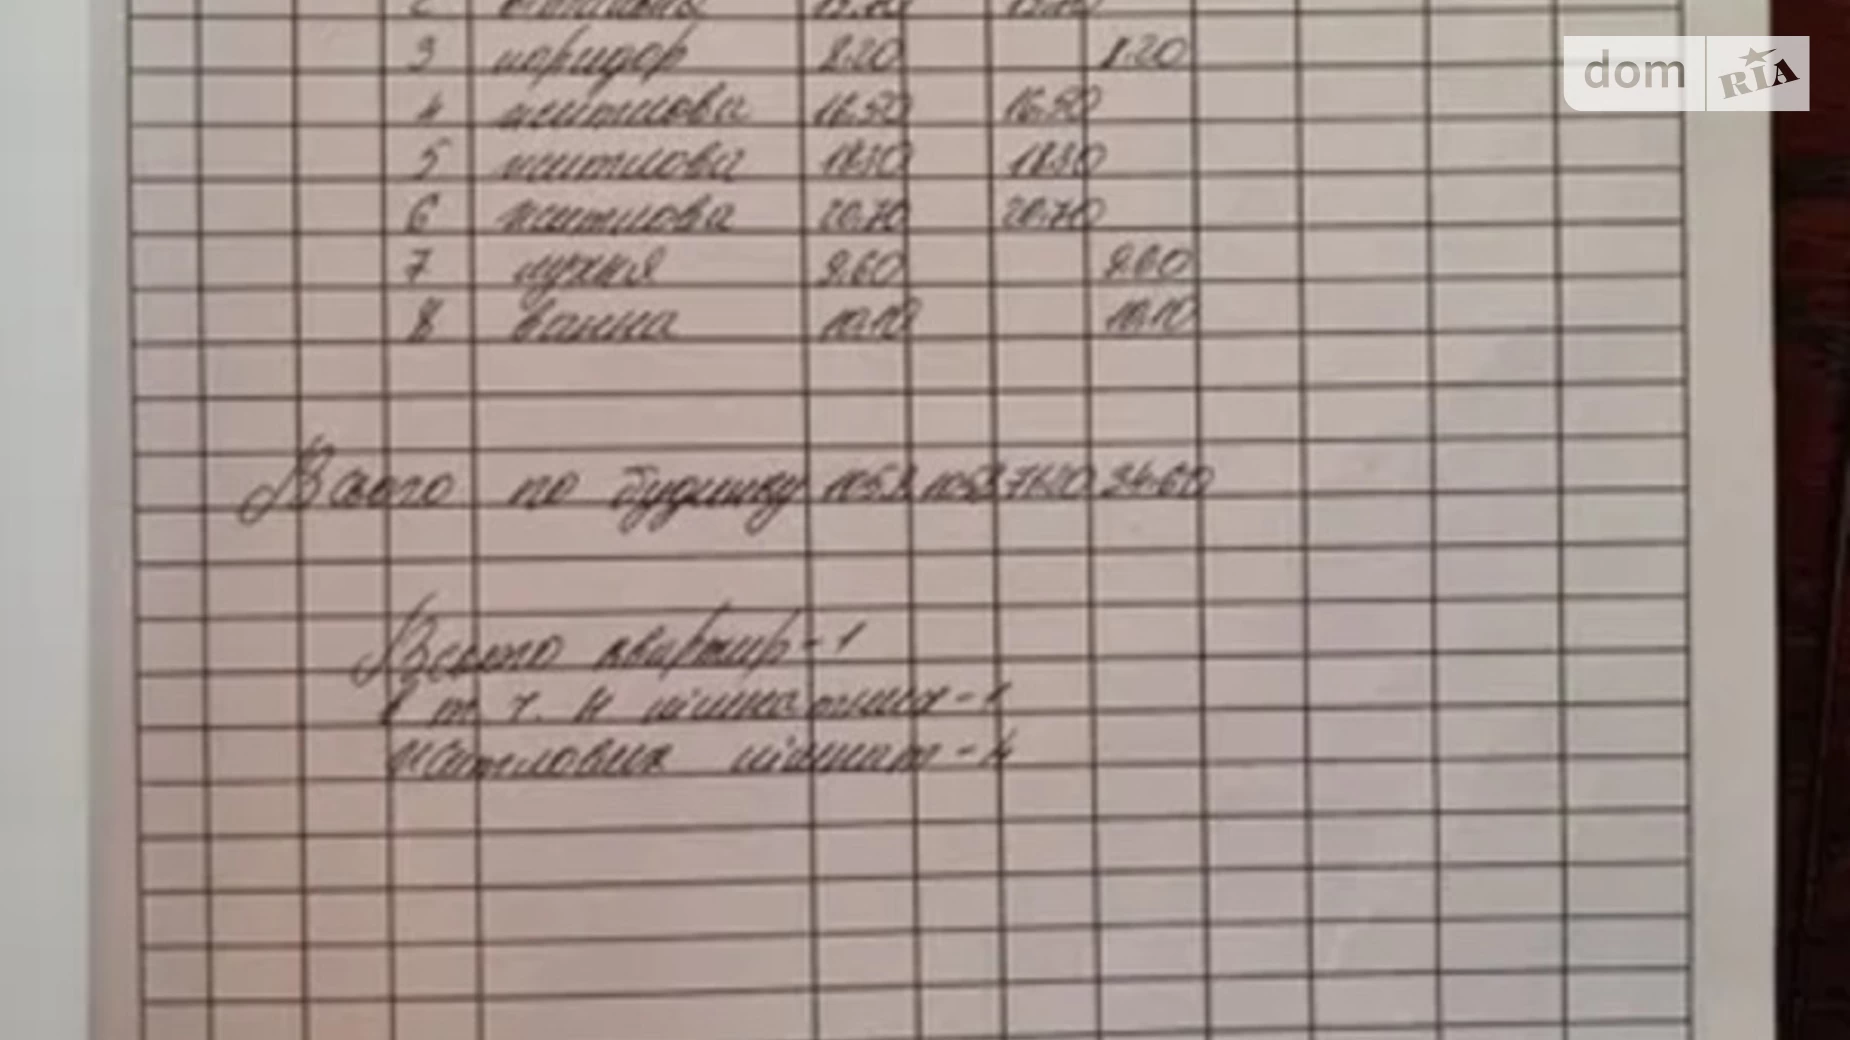 dom RIA
2 житлова 15.70 15.70
3 коридор 8.20 8.20
4 житлова 16.50 16.50
5 житлова 18.30 18.30
6 житлова 20.70 20.70
7 кухня 9.60 9.60
8 ванна 10.10 10.10
Всього по будинку 105.8 105.8 71.20 34.60
Всього квартир - 1
в т. ч. 4 кімнатних - 1
житлових кімнат - 4